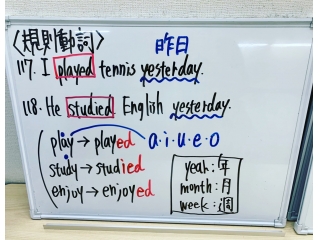 〈規則動詞〉 昨日
117. I played tennis yesterday.
118. He studied English yesterday.
play → played a・i・u・e・o
study → studied
enjoy → enjoyed
year: 年
month: 月
week: 週